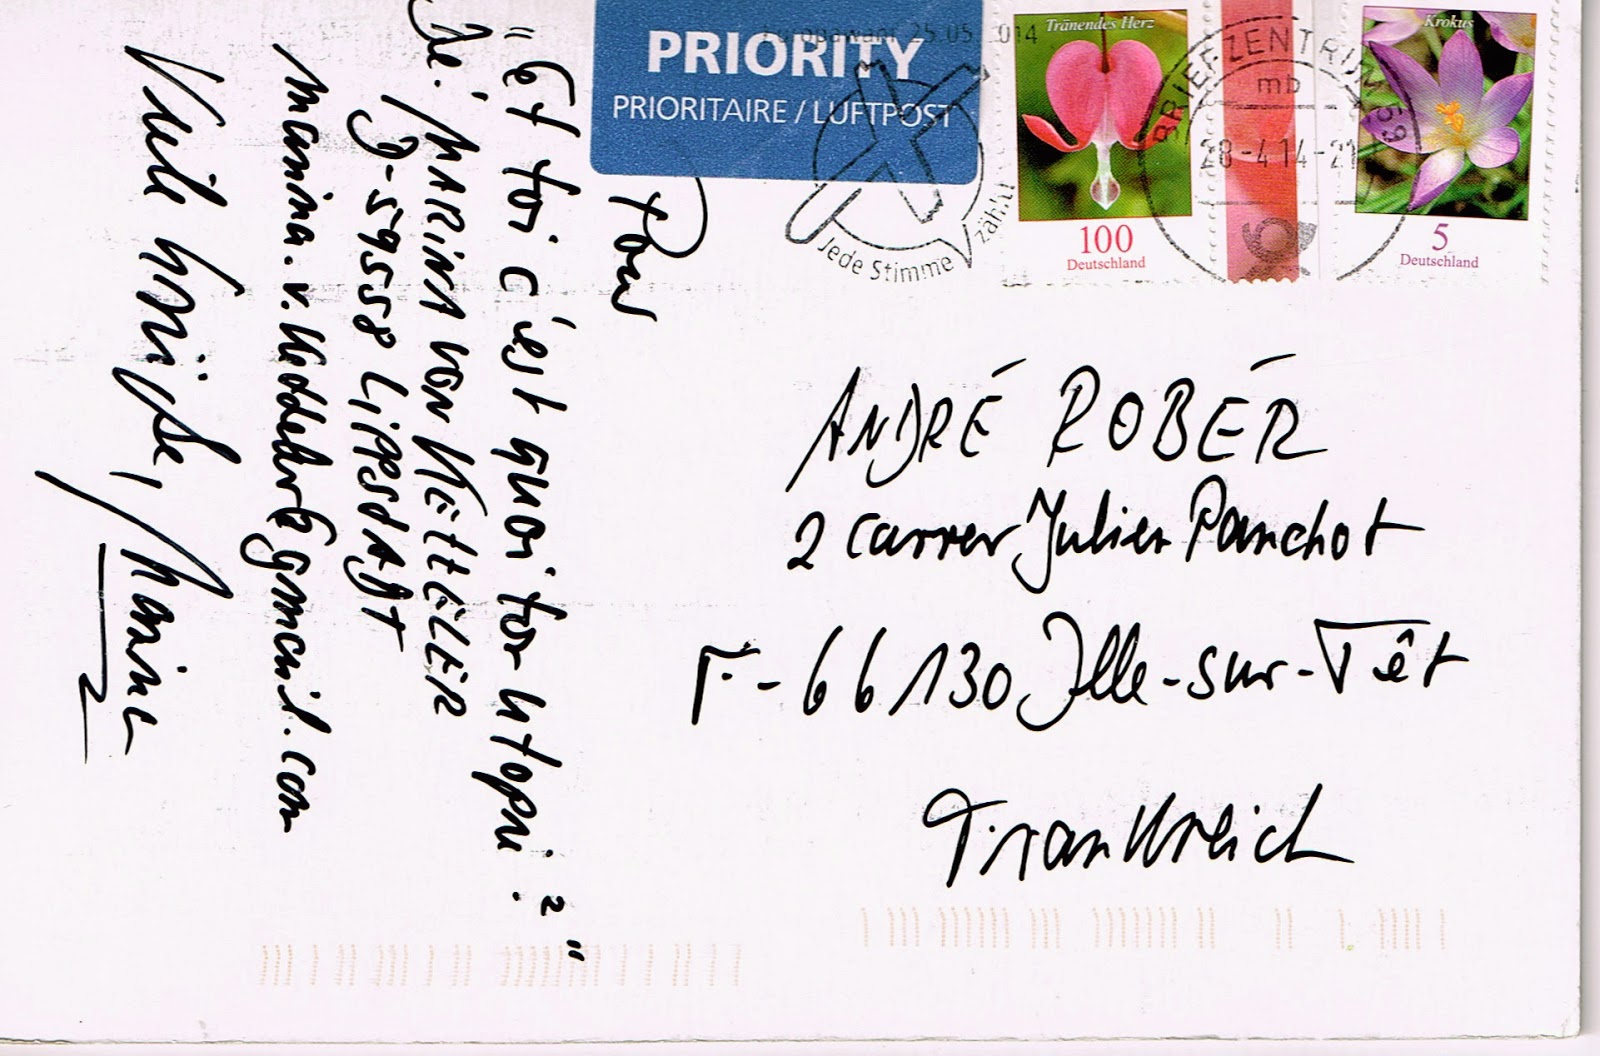 Pour
"Et toi c'est quoi ton utopie?"
De: MARINA VON KETTELER
D-59558 LIPPSTADT
Viele Grüße, Marina
PRIORITY
PRIORITAIRE / LUFTPOST
Europawahl 25.05.2014
Jede Stimme zählt!
Tränendes Herz
100
Deutschland
BRIEFZENTRUM 59
mb
28-4.14-21
Krokus
5
Deutschland
ANDRÉ ROBÉR
2 Carrer Julien Panchot
F-66130 Ille-sur-Têt
Frankreich